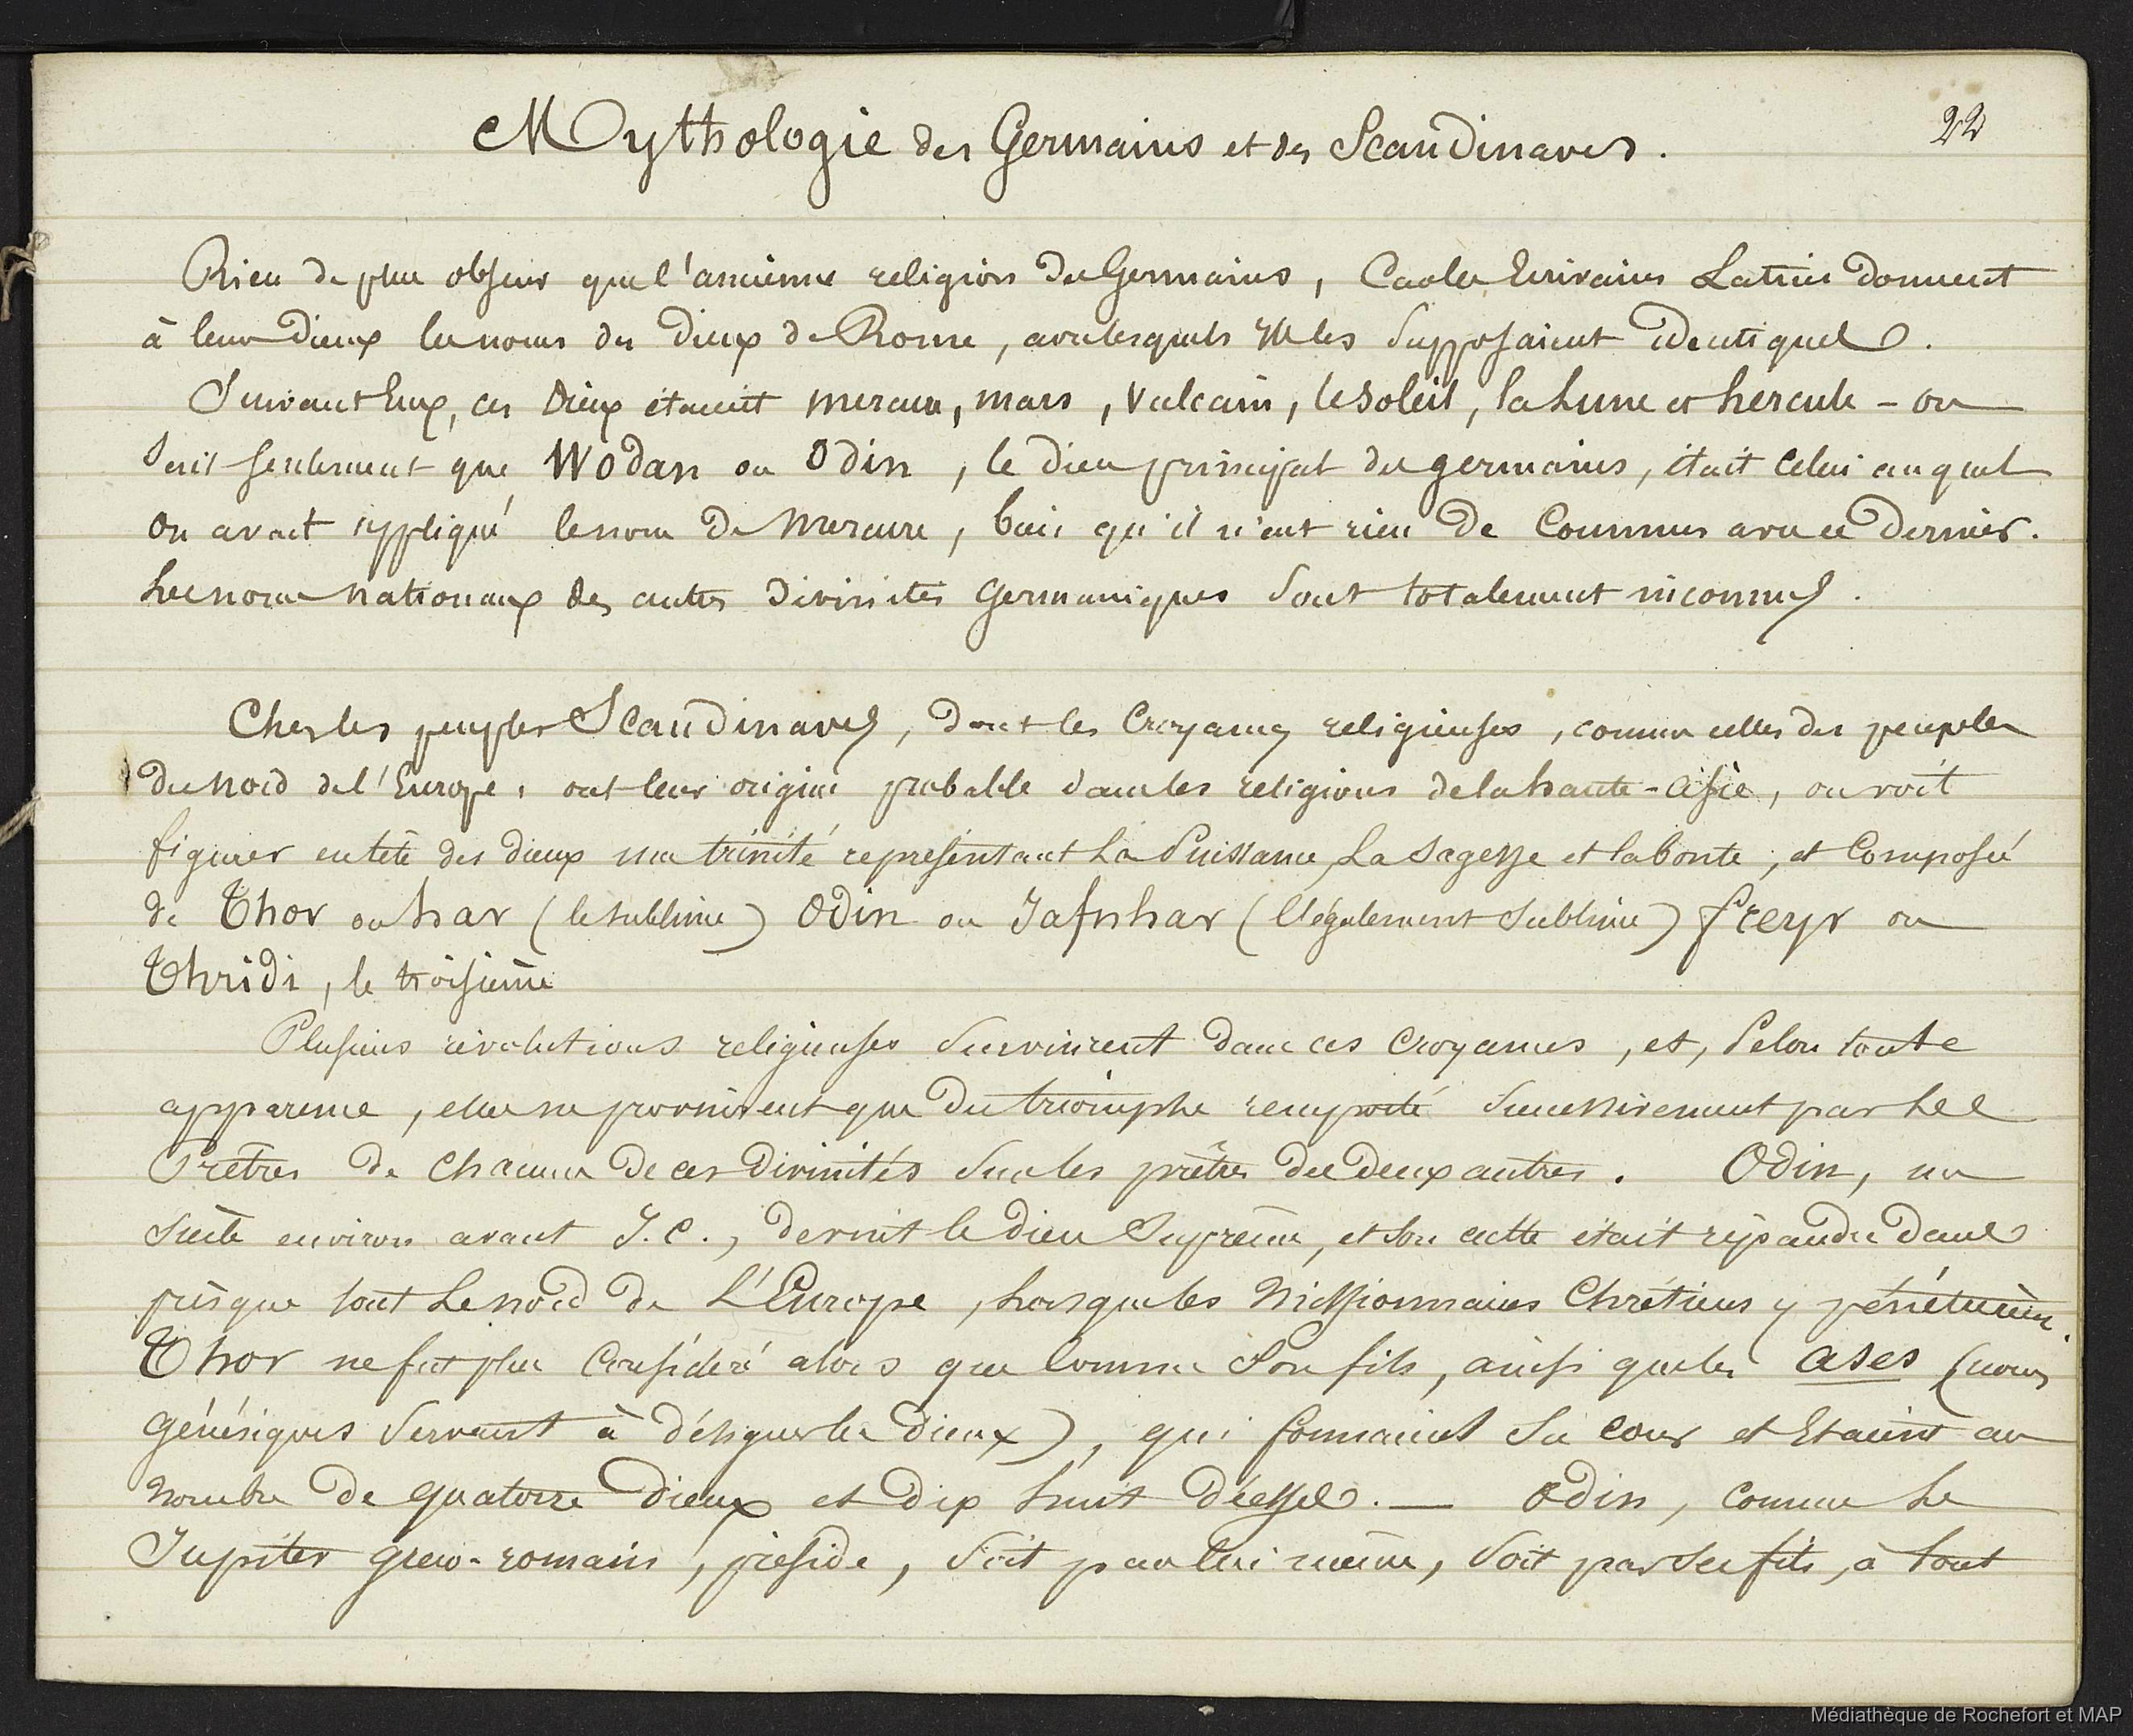 Mythologie des Germains et des Scandinaves.
22
Rien de plus obscur que l'ancienne religion des Germains, Car les Ecrivains Latins donnent
à leurs Dieux les noms des Dieux de Rome, avec lesquels Ils les supposaient identiques.
Suivant Eux, ces Dieux étaient mercure, mars, Vulcain, le soleil, la Lune et hercule - on
sait seulement que Wodan ou Odin, le dieu principal des germains, était celui auquel
On avait appliqué le nom de Mercure, bien qu'il n'eut rien de Commun avec ce Dernier.
Les noms nationaux des autres Divinités Germaniques sont totalement inconnus.
Chez les peuples Scandinaves, dont les Croyances religieuses, comme celles des peuples
du Nord de l'Europe, ont leur origine probable dans les religions de la haute-Asie, on voit
figurer en tête des dieux une trinité représentant La Puissance, La Sagesse et la bonté, et Composée
de Thor ou har (le sublime) Odin ou Jafnhar (l'également sublime) freyr ou
Thridi, le troisième
Plusieurs révolutions religieuses survinrent dans ces Croyances, et, Selon toute
apparence, elles ne provinrent que du triomphe remporté successivement par Les
Prêtres de chacune de ces Divinités sur les prêtres des deux autres. Odin, un
siècle environ avant J.C., devint le dieu Suprême, et son culte était répandu dans
presque tout Le nord de L'Europe, Lorsque les Missionnaires Chrétiens y pénétrèrent.
Thor ne fut plus Considéré alors que Comme Son fils, ainsi que les ases (noms
génériques servant à désigner les Dieux), qui formaient sa cour et Etaient au
Nombre de quatorze Dieux et dix huit déesses. — Odin, comme Le
Jupiter greco-romain, préside, soit par lui même, soit par ses fils, à tout
Médiathèque de Rochefort et MAP